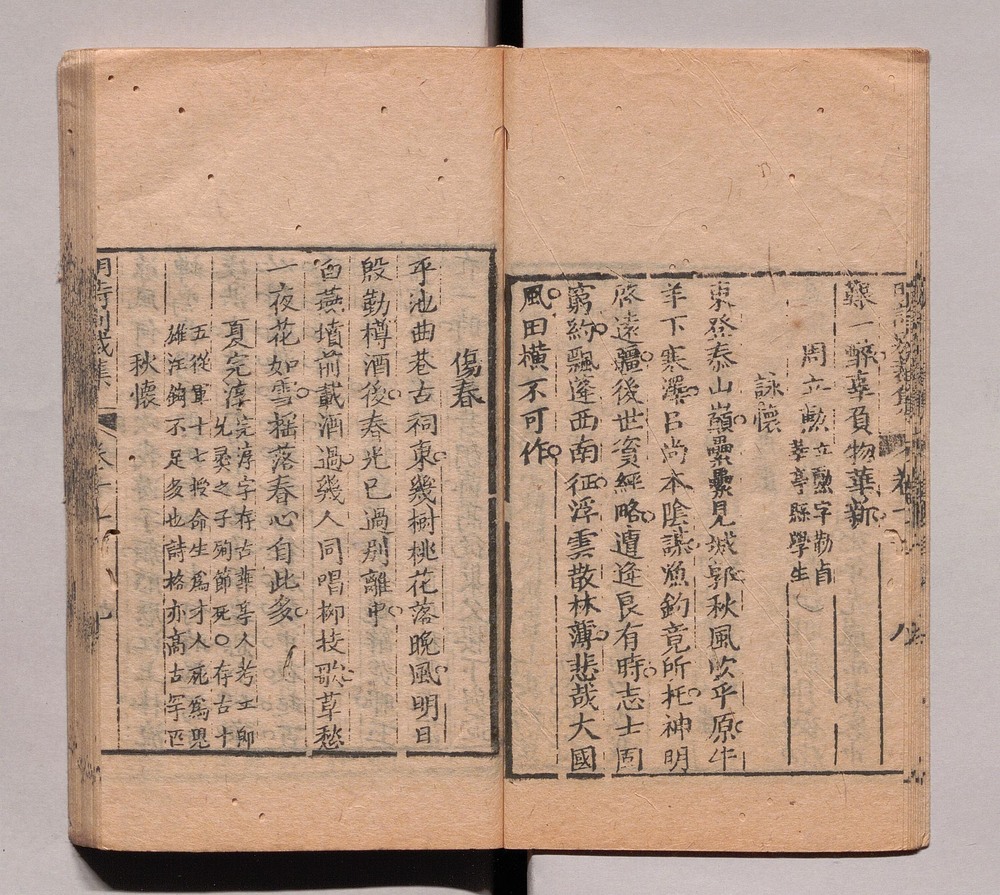 艱一醉辜負物華新
周立勳立勳字勒卣
華亭縣學生
詠懷
東登泰山巔纍纍見城郭秋風吹平原牛
羊下寒澤呂尚本陰謀漁釣竟所托神明
啓遠疆後世資經略遭逢良有時志士固
窮約飄蓬西南征浮雲散林薄悲哉大國
風田橫不可作
傷春
平池曲巷古祠東幾樹桃花落晚風明日
殷勤樽酒後春光已過別離中
白燕墳前載酒過幾人同唱柳枝歌草愁
一夜花如雪搖落春心自此多
夏完淳完淳字存古華亭人考士郎
允彝之子殉節死○存古十
五從軍十七授命生爲才人死爲鬼
雄汪錡不足多也詩格亦高古罕匹
秋懷
明詩別裁集 卷十一 九